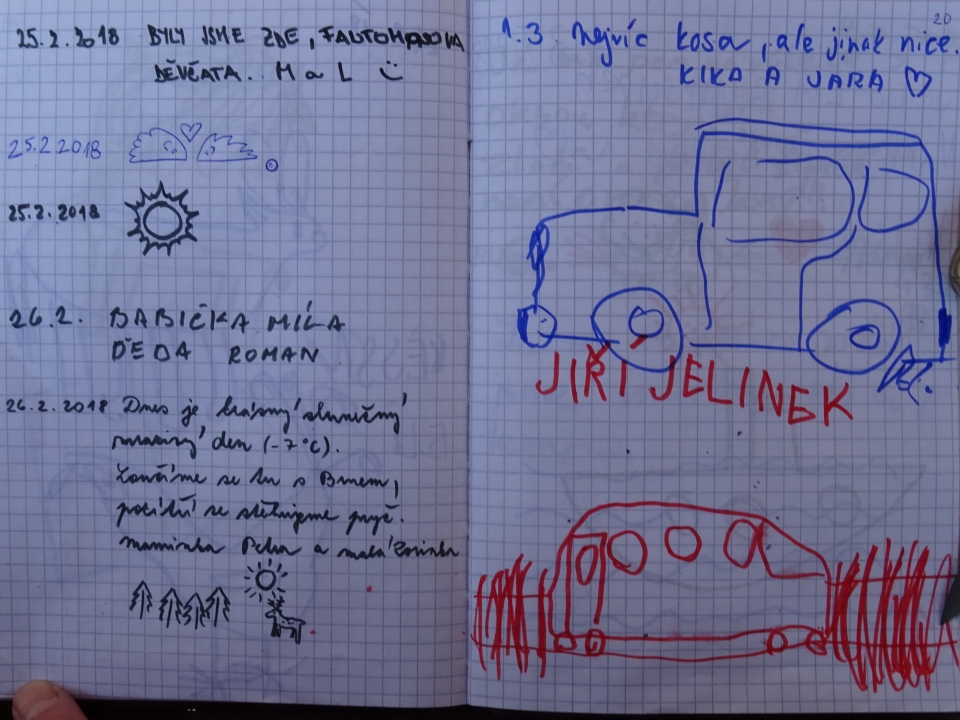 25.2.2018 BYLY JSME ZDE,
DĚVČATA. M a L
25.2.2018
25.2.2018
26.2. BABIČKA MÍLA
DĚDA ROMAN
26.2.2018 Dnes je krásný slunečný
mrazivý den (-7°C).
Loučíme se tu s Brnem,
pozítří se stěhujeme pryč.
maminka Petra a malá
20
1.3. nejvíc kosa, ale jinak nice.
KIKA A JARA
JIŘÍ JELINEK